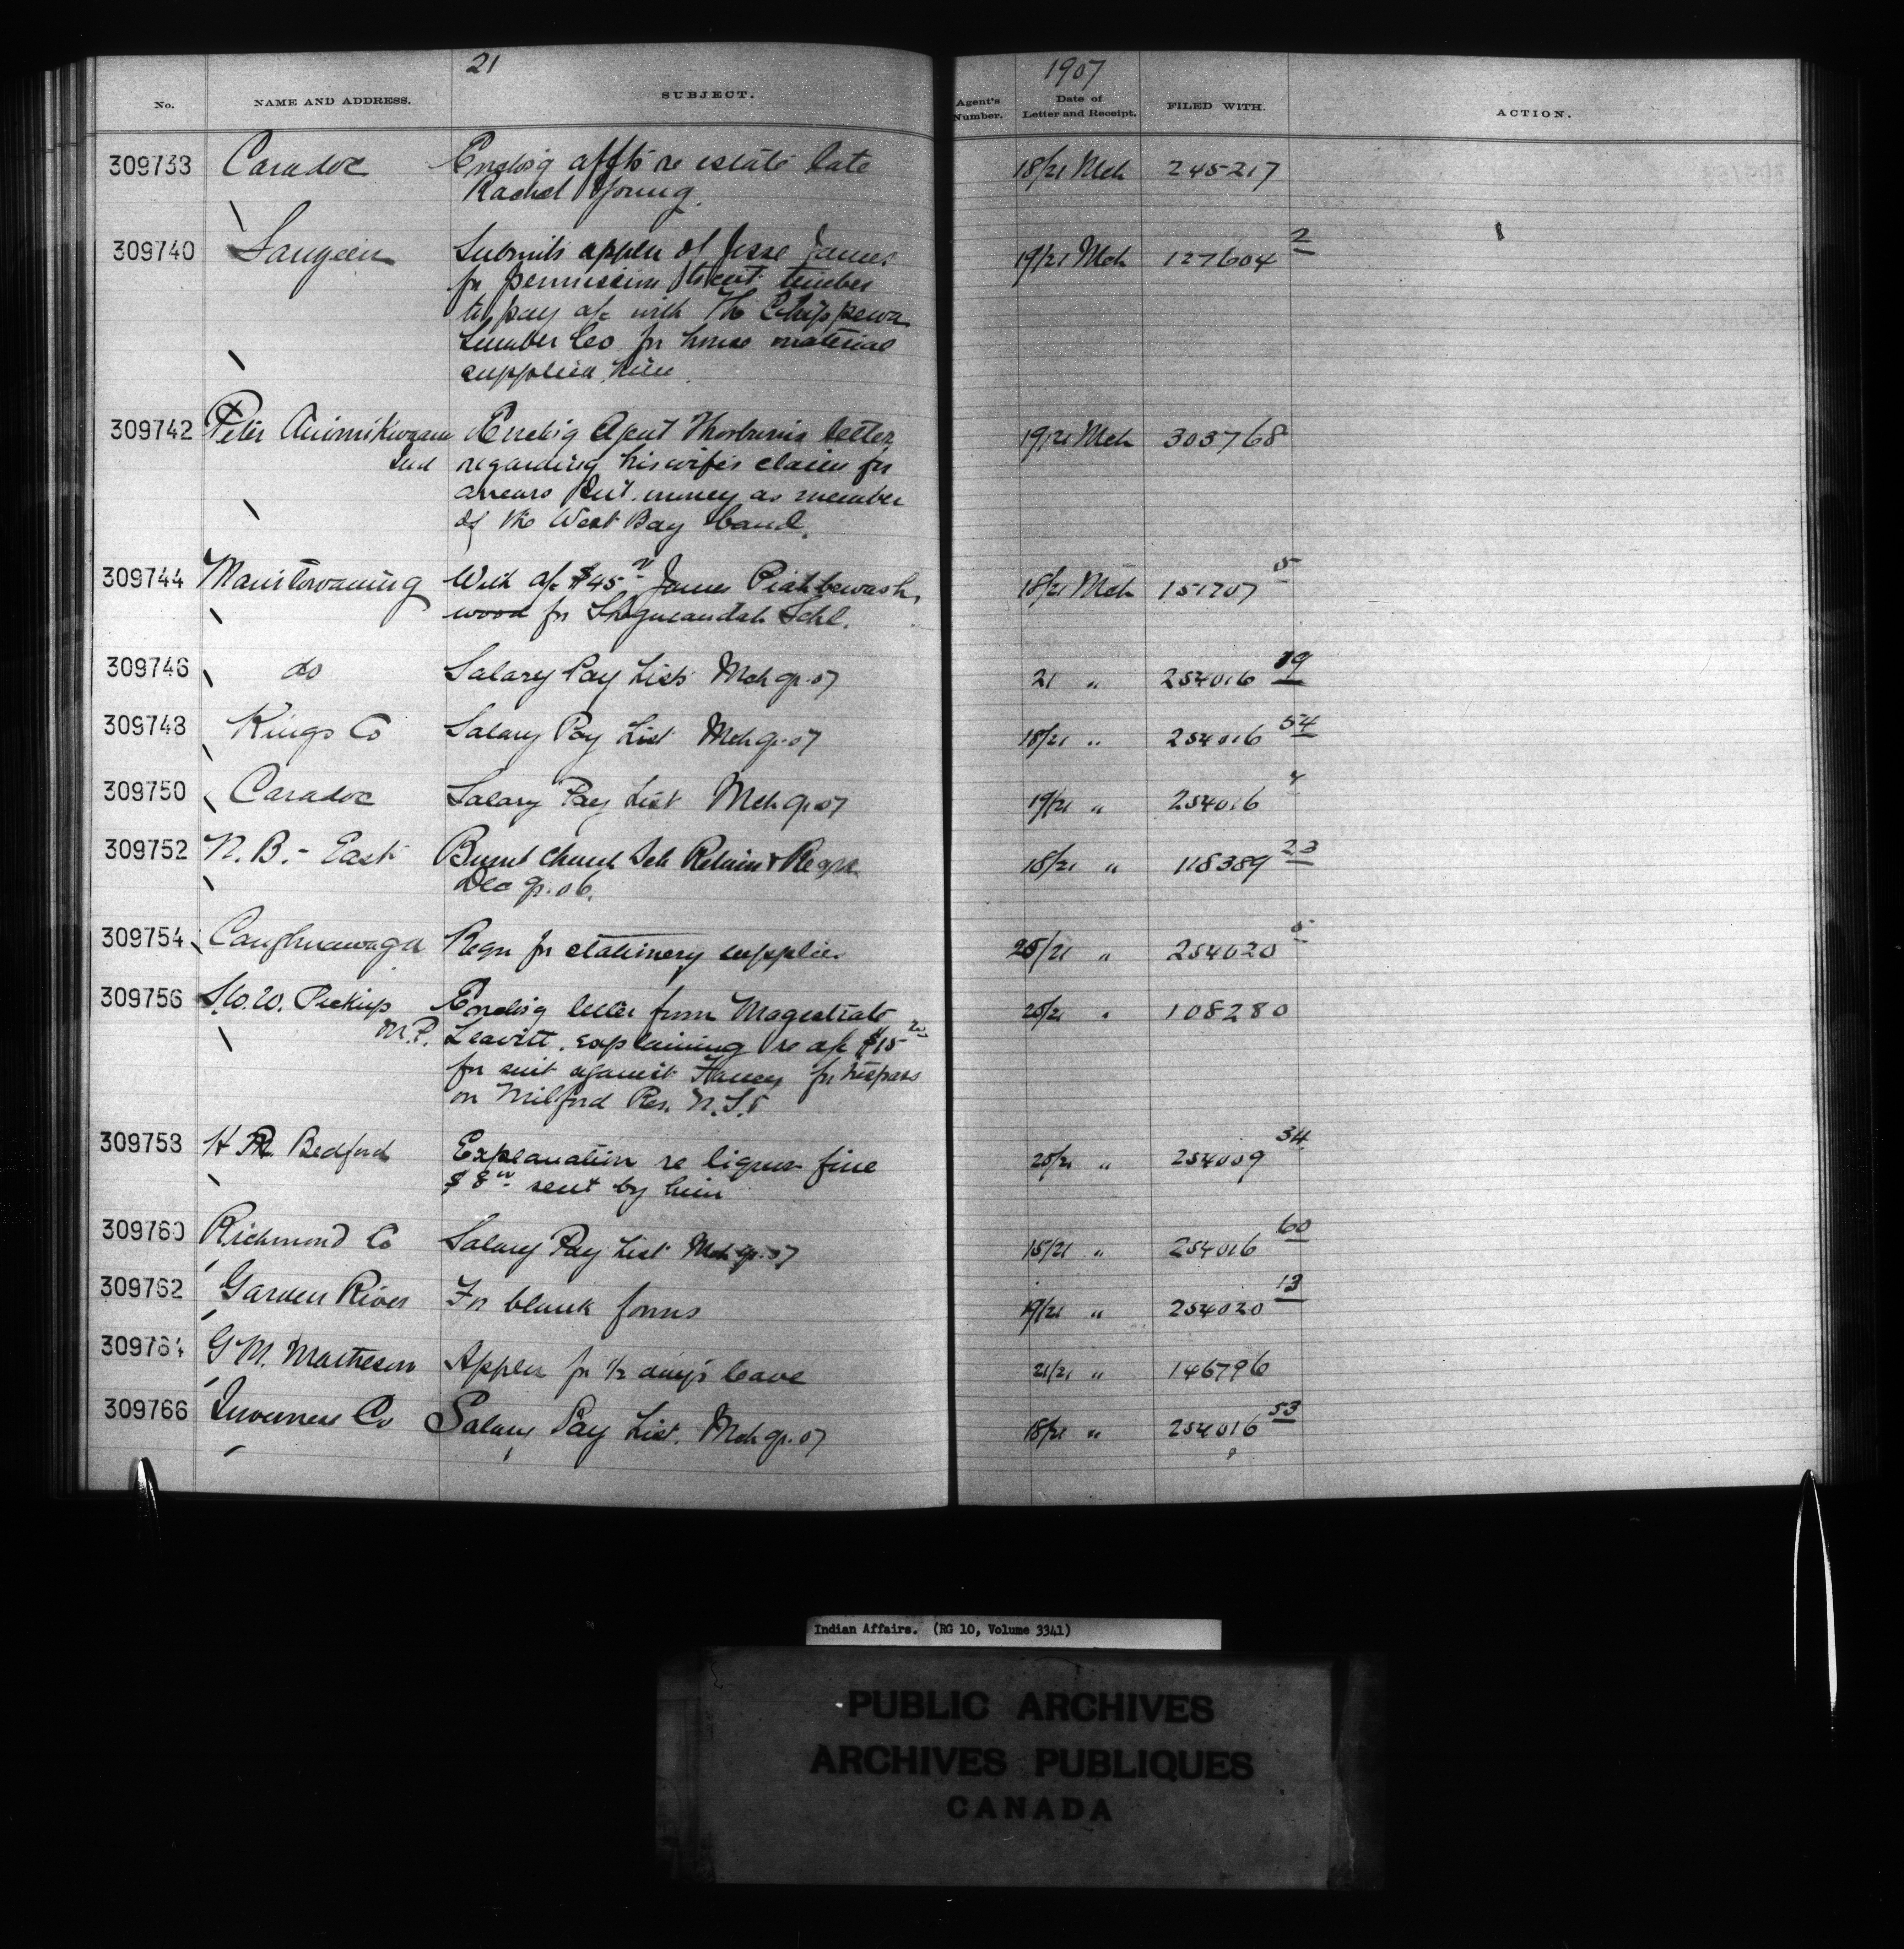 21
1907
No. NAME AND ADDRESS. SUBJECT. Agent's Number. Date of Letter and Receipt. FILED WITH. ACTION.
309738 Caradoc Enclos'g affts re estate late 18/21 Mch 245217
Rachel Young.
309740 Saugeen Submits applen of Jesse James 19/21 Mch 127604 2
for permission to cut timber
to pay a/c with The Chippewa
Lumber Co for house material
supplied him.
309742 Peter Enclos'g Agent Thorburn's letter 19/21 Mch 303768
Ind regarding his wife's claim for
arrears Int. money as member
of the West Bay band.
309744 Manitowaning With a/c $45 James Piahbewash, 18/21 Mch 151707 5
wood for Sheguiandah Schl.
309746 do Salary Pay Lists Mch qr. 07 21 " 254016 19
309748 Kings Co Salary Pay List Mch qr. 07 18/21 " 254016 54
309750 Caradoc Salary Pay List Mch qr 07 19/21 " 254016
309752 N. B. - East Burnt Church Sch Return & Reqn 18/21 " 118389 23
Dec qr. 06.
309754 Caughnawaga Reqn for stationery supplies 20/21 " 254020 5
309756 S. W. W. Pickup Enclos'g letter from Magistrate 20/21 " 108280
M.P. Leavitt, explaining re a/c $15
for suit against for trespass
on Milford Res. N.S.
309758 H R. Bedford Explanation re liquor fine 20/21 " 254009 34
$8 sent by him
309760 Richmond Co Salary Pay List Mch qr. 07 15/21 " 254016 60
309762 Garden River For blank forms 19/21 " 254020 13
309764 G M. Matheson Applen for 1/2 day's leave 21/21 " 146796
309766 Inverness Co Salary Pay List. Mch qr. 07 18/21 " 254016 53
Indian Affairs. (RG 10, Volume 3341)
PUBLIC ARCHIVES
ARCHIVES PUBLIQUES
CANADA